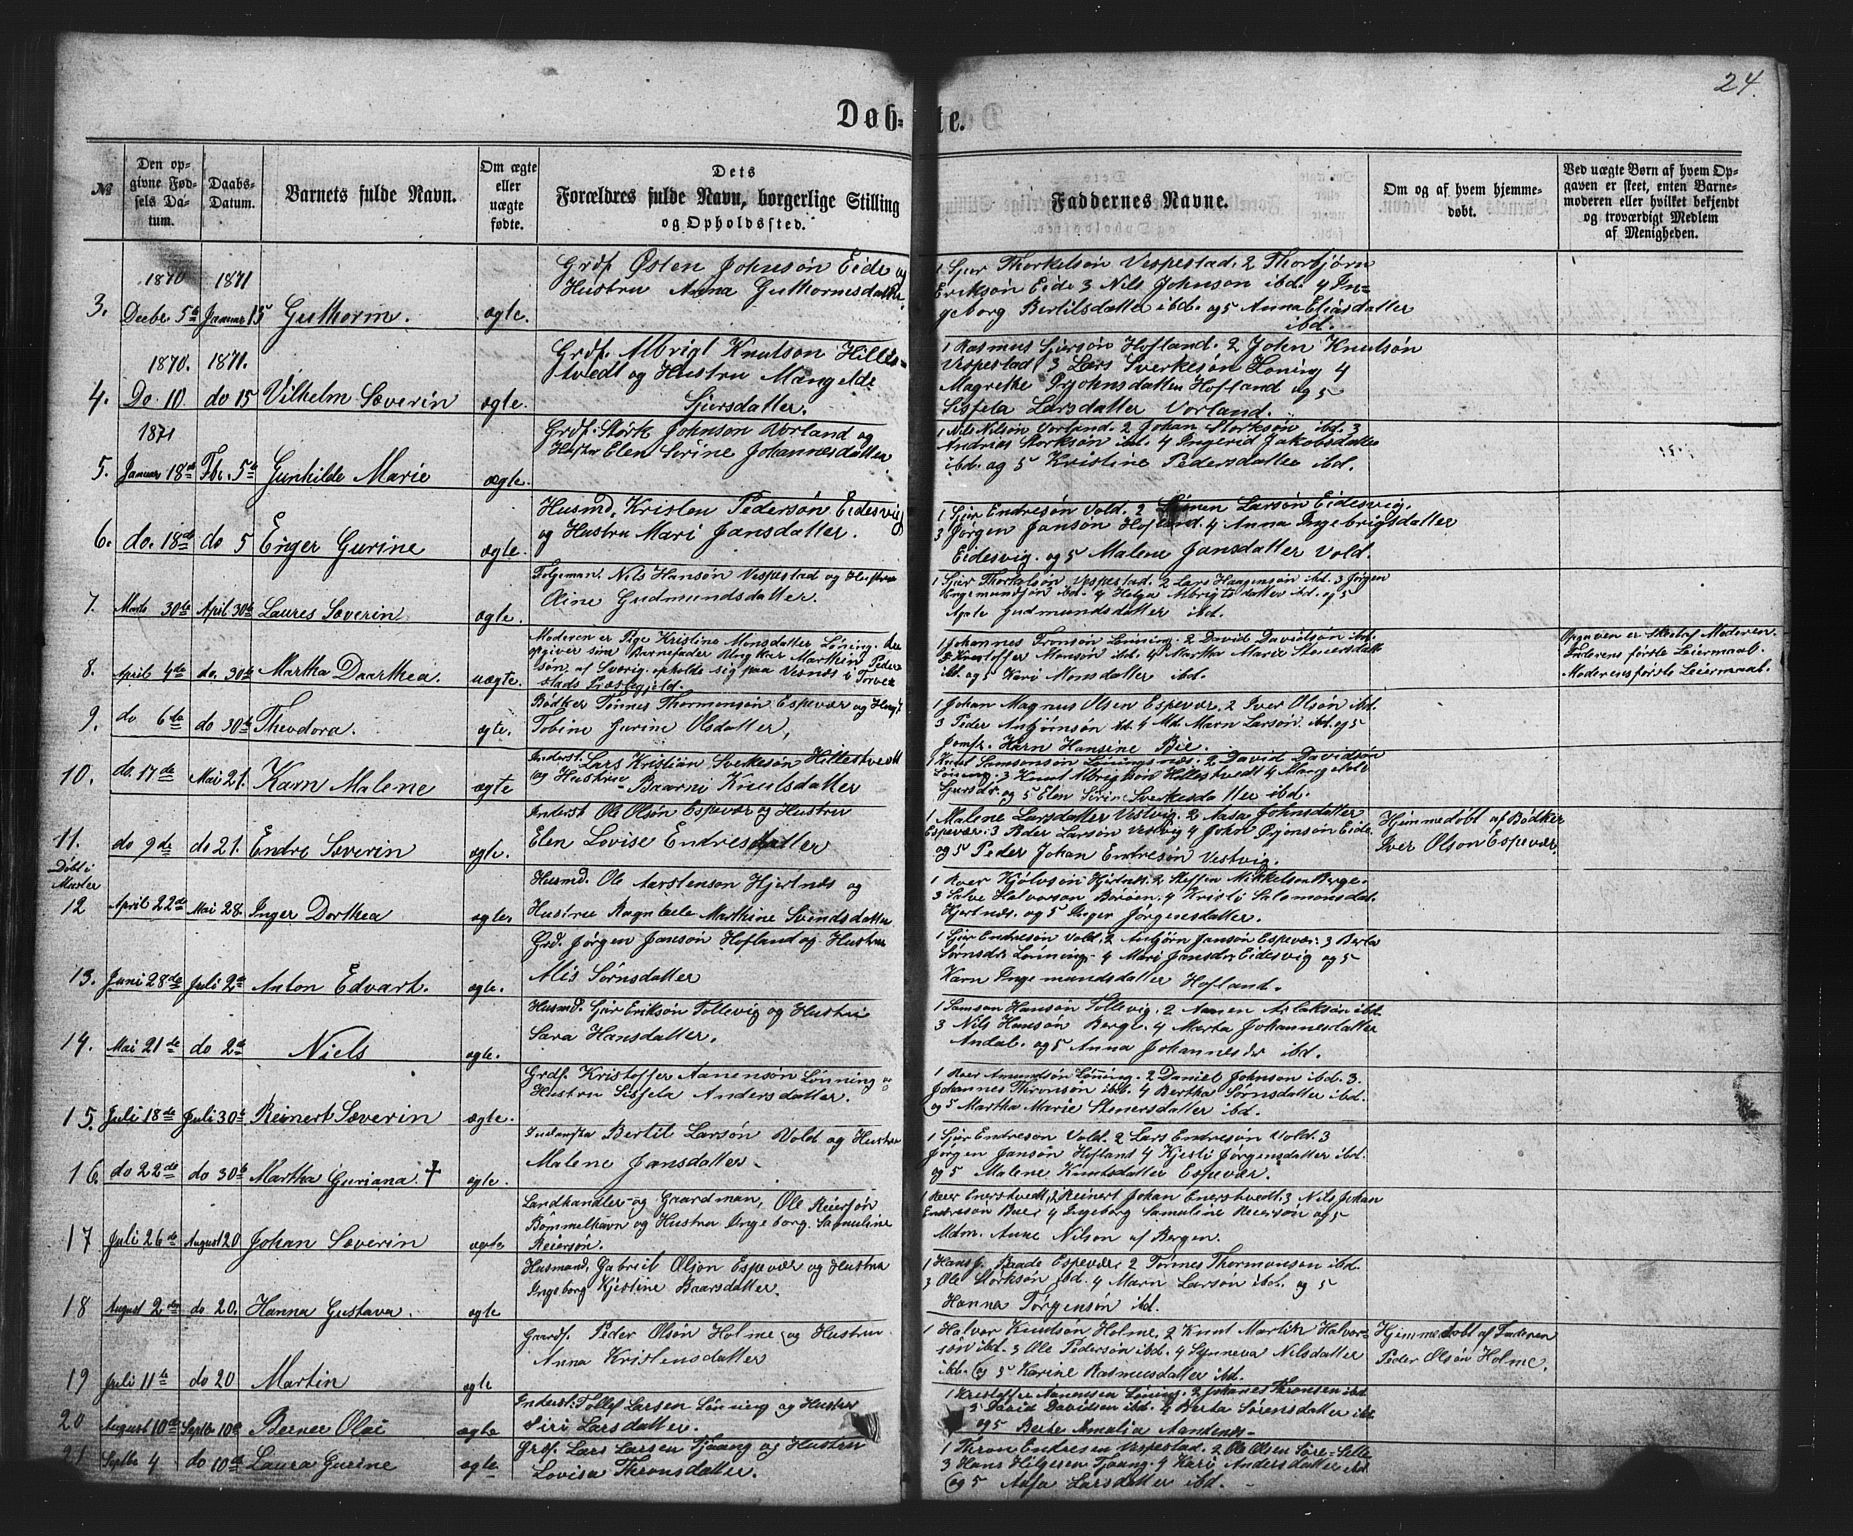 24.
Døb- te.
№
Den opgivne Fødsels Datum.
Daabs-Datum.
Barnets fulde Navn.
Om ægte eller uægte fødte.
Dets Forældres fulde Navn, borgerlige Stilling og Opholdssted.
Faddernes Navne.
Om og af hvem hjemmedøbt.
Ved uægte Børn af hvem Opgaven er skeet, enten Barnemoderen eller hvilket bekjendt og troværdigt Medlem af Menigheden.
1870 1871
3. Decbr. 5te Januar 15 Guthorm. ægte.
Grdf. Østen Johnsøn Eide og
Hustru Anna Guthormsdatter.
1 Sjur Thorkelsøn Vespestad. 2 Thorbjørn
Eriksøn Eide 3 Nils Johnson ibd. 4 In-
geborg Bertilsdatter ibd. og 5 Anna Eliasdatter
ibd.
1870. 1871.
4. Do. 10 do 15 Vilhelm Severin ægte.
Grdf. Albrigt Knutson Hilles-
tvedt og Hustru Mangelde
Sjursdatter.
1 Rasmus Sjursøn Hofland. 2 Joten Knutsøn
Vespestad 3 Lars Sverkesøn Løning 4
Magrethe Johnsdatter Hofland og 5
Sisfela Larsdatter Vorland.
1871
5. Januar 18de Fbr. 5te Gunhilde Marie ægte.
Grdf. Stork Johnson Vorland og
Hustru Elen Serine Johannesdatter
1 Nils Nilsøn Vorland. 2 Johan Storksøn, ibd. 3
Andreas Storksøn ibd. 4 Ingerid Jakobsdatter
ibd. og 5 Kristine Pedersdatter ibd.
6. do. 18de do 5 Enger Gurine ægte.
Husmd. Kristen Pedersøn Eidesvig
og Hustru Mari Jansdatter.
1 Sjur Endresøn Vold. 2 Simen Larsøn Eidesvig.
3 Jørgen Jansøn Hofland. 4 Anna Ingebrigsdatter
Eidesvig. og 5 Malene Jansdatter Vold.
7. Marts 30te April 30te Laures Severin ægte.
Følgeman. Nils Hansøn Vespestad og Hustru
Oline Gudmundsdatter.
1 Sjur Thorkelsøn Vespestad. 2 Lars Haagensøn ibd. 3 Jørgen
Ingemundsøn ibd. 4 Helga Albrigtsdatter ibd. og 5
Agate Gudmundsdatter ibd.
8. April 4de do. 30te Martha Daarthea. uægte.
Moderen er Pige Kristine Monsdatter Løning. der
opgiver som Barnefader Ungkar Marthin Peder-
søn af Sverig. opholde sig paa Vesnes i Torve-
stads Præstegjeld.
1 Johannes Tronsøn Lønning. 2 David Davidsøn ibd.
3 Kristoffer Monsøn ibd. 4 Martha Marie Stenersdatter
ibd. og 5 Kari Monsdatter ibd.
Opgaven er Skeet af Moderen.
Faderens første Leiermaal.
Moderens første Leiermaal.
9. do 6te do 30te Theodora. ægte.
Bødker Tønnes Thormonsøn Espevær og Hustru
Tobine Gurine Olsdatter.
1 Johan Magnus Olsen Espevær, 2 Iver Olsøn ibd.
3 Peder Asbjørnsøn ibd. 4 Md. Marn Larsøn. ibd. og 5
Jomfr. Karn Hansine Bie.
10. do. 17de Mai 21. Karn Malene ægte
Inderst. Lars Kristian Sverkesøn Hillestvedt
og Hustru Baarni Knutsdatter
1 Knut Samsonsøn Lønningsnæs. 2 David Davidsøn
Lønning. 3 Knut Albrigtsøn Hillestvedt 4 Mangelde
Sjursdr. og 5 Elen Serine Sverkesdatter ibd.
11. do 9de do 21. Endre Severin ægte.
Inderst Ole Olsøn Espevær og Hustru
Elen Lovise Endresdatter
1 Malene Larsdatter Vestvig. 2 Aasa Johnsdatter
Espevær. 3 Peder Larsøn Vestvig 4 Johan Eide,
og 5 Peder Johan Endresøn Vestvig.
Hjemmedøbt af Bødker
Iver Olson Espevær.
Døbt i
Moster
12 April 22de Mai 28. Inger Dorthea ægte.
Husmd. Ole Aarstenson Hjertnæs og
Hustru Ragnbele Marthine Svindsdatter
1 Roer Kjølvsøn Hjertnæs. 2 Steffen Mikkelsen Berge.
3 Salve Halvorson Børøen. 4 Kristi Salomonsdat.
Hjertnæs. og 5 Inger Jørgensdatter.
13. Juni 28de Juli 2den Anton Edvart. ægte.
Grd. Jørgen Jansøn Hofland og Hustru
Alis Sørnsdatter
1 Sjur Endresøn Vold. 2 Anbjørn Jansøn Espevær. 3 Berta
Sørnsdr. Lønning. 4 Mari Jansdr. Eidesvig og 5
Karn Ingemundsdatter Hofland.
14. Mai 21de do 2den Niels ægte.
Husmd. Sjur Eriksøn Tollevig og Hustru
Sara Hansdatter.
1 Samson Hansøn Tollevig. 2 Aanen Aslaksøn ibd.
3 Nils Hansøn Berge. 4 Marta Johannesdatter
Andal. og 5 Anna Johannesdr ibd.
15. Juli 18de Juli 30te Reinert Severin ægte.
Grdf. Kristoffer Aanensøn Lønning og
Hustru Sisfela Andersdatter.
1 Roer Amundsøn Lønning. 2 Daniel Johnson ibd. 3.
Johannes Thronsøn ibd. 4 Bertha Sørnsdatter ibd.
og 5 Martha Marie Stenersdatter ibd.
16. do 22de do 30te Martha Guriana. † ægte.
Bertil Larsøn Vold og Hustru
Malene Jansdatter.
1 Sjur Endreson Vold. 2 Lars Endresøn Vold. 3
Jørgen Jansøn Hofland 4 Kjesti Jørgensdatter ibd.
og 5 Malene Knutsdatter Espevær.
17 Juli 26de August 20 Johan Severin ægte.
Landhandler og Gaardman, Ole Reiersøn
Bømmelhavn og Hustru Ingeborg Samueline
Reiersøn.
1 Roer Enerstvedt, 2 Reinert Johan Enerstvedt. 3 Nils Johan
Endreson 4 Ingeborg Samuline Reiersøn og 5
Mdm. Anne Nilson af Bergen.
18 August 2den do. 20. Hanna Gustava. ægte
Husmand, Gabriel Olson Espevær og Hustru
Ingeborg Kjestine Baarsdatter.
1 Hans J. Baade Espevær. 2 Tønnes Thormonson ibd.
3 Ole Storksøn ibd. 4 Marn Larsøn ibd. og 5
Hanna Tørgensøn ibd.
19 Juli 11te do 20 Martin ægte
Gaardf. Peder Olsøn Holme og Hustru
Anna Kristensdatter
1 Halvor Knudsøn Holme. 2 Knut Martin Halvor-
søn ibd. 3 Ole Pedersøn ibd. 4 Synneva Nilsdatter
ibd. og 5 Karine Rasmusdatter ibd.
Hjemmedøbt af Faderen
Peder Olsøn Holme.
20 August 10de Septbr 10de Berner Olai ægte
Inderst: Tollef Larsen Lønning og Hustru
Siri Larsdatter.
1 Kristoffer Aanensen Løning. 2 Johanes Thronsen ibd
3 David Davidsen ibd. 4 Berta Sørensdatter ibd
og 5 Berte Amalia
21 Septbr 4 do 10de Laura Gurine ægte
Grdf. Lars Larsen Tjoang og Hustru
Lovisa Thronsdatter.
1 Thron Endresen Vespestad. 2 Ole Olsen Søre-Lille
3 Hans Helgesen Tjoang. 4 Kari Andersdatter ibd
og 5 Aasa Larsdatter ibd.